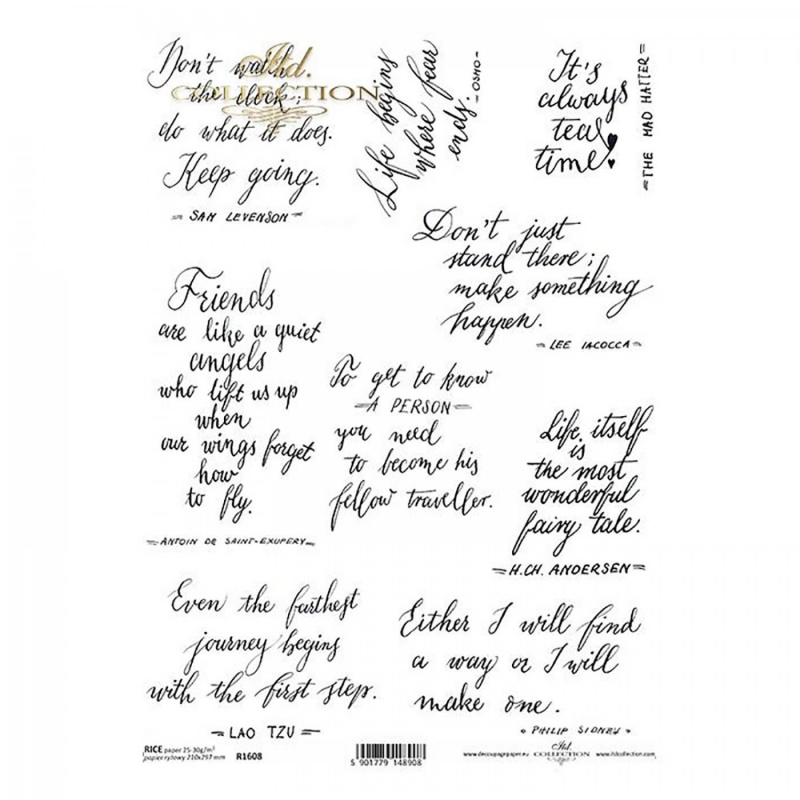 Don't watch
the clock;
do what it does.
Keep going.
= SAM LEVENSON =
Itd.
COLLECTION
Life begins
where fear
ends.
- OSHO -
It's
always
tea
time!
= THE MAD HATTER =
Don't just
stand there;
make something
happen.
= LEE IACOCCA =
Friends
are like a quiet
angels
who lift us up
when
our wings forget
how
to fly.
= ANTOIN DE SAINT-EXUPERY =
To get to know
= A PERSON =
you need
to become his
fellow traveller.
Life itself
is
the most
wonderful
fairy tale.
= H.CH. ANDERSEN =
Even the farthest
journey begins
with the first step.
= LAO TZU =
Either I will find
a way or I will
make one.
• PHILIP SIDNEY •
RICE paper 25-30g/m²
papier ryżowy 210x297 mm R1608
5 901779 148908
www.decoupagepaper.eu
Itd.
COLLECTION
www.itdcollection.com